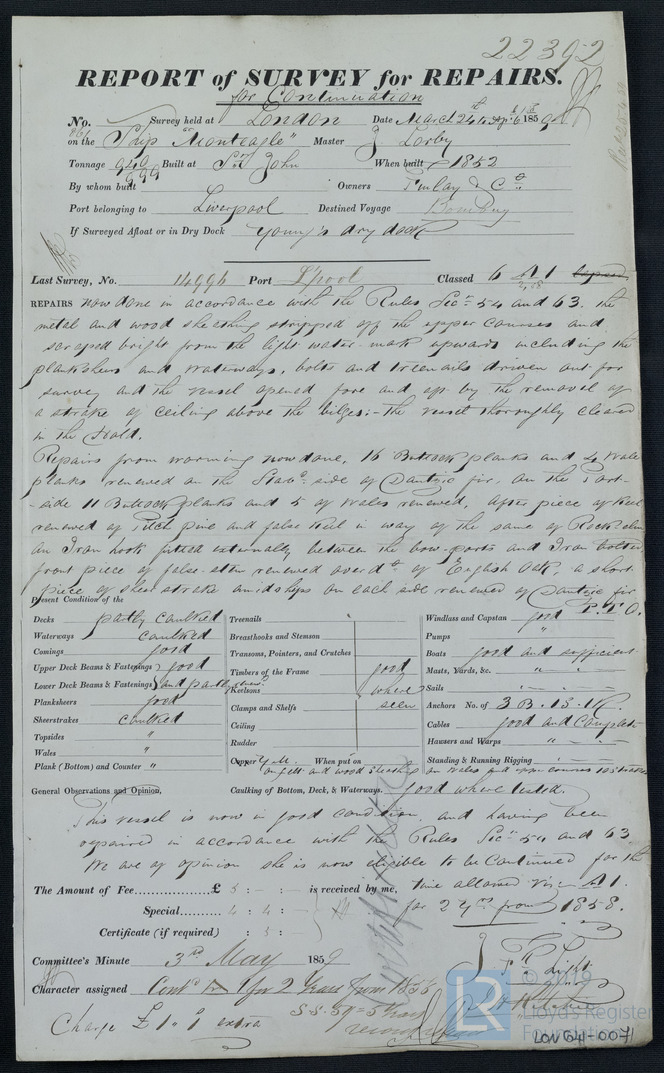 22392
REPORT of SURVEY for REPAIRS.
for Continuation
No. Survey held at London Date March 24 1859
on the Ship "Monteagle" Master J. Lorby
Tonnage 949 999 Built at St John When built 1852
By whom built Owners Finlay & Co
Port belonging to Liverpool Destined Voyage Bombay
If Surveyed Afloat or in Dry Dock Young's dry dock
Last Survey, No. 14996 Port Lpool Classed 6 A1
REPAIRS now done in accordance with the Rules Secn 54 and 63. the
metal and wood sheathing stripped off the upper courses and
scraped bright from the light water mark upwards including the
plankshears and waterways, bolts and treenails driven out for
survey and the vessel opened fore and aft by the removal of
a strake of ceiling above the bilges;- the vessel thoroughly cleared
in the Hold.
Repairs from worming now done, 16 Buttock planks and 4 Wale
planks renewed on the Starbd side of Dantzic fir, on the Port
side 11 Buttock planks and 5 of Wales renewed, after piece of Keel
renewed of Pitch pine and false Keel in way of the same of Rock elm
an Iron hook fitted externally between the bow-ports and Iron bolted
front piece of false stem renewed of English Oak, a short
piece of sheer strake amidships on each side renewed of Dantzic fir
P.T.O.
Present Condition of the
Decks partly caulked
Waterways caulked
Comings good
Upper Deck Beams & Fastenings good
Lower Deck Beams & Fastenings and partly
Planksheers good
Sheerstrakes caulked
Topsides "
Wales "
Plank (Bottom) and Counter "
Treenails
Breasthooks and Stemson
Transoms, Pointers, and Crutches
Timbers of the Frame good
Keelsons where
Clamps and Shelfs seen
Ceiling
Rudder
Copper Y.M. When put on
on felt and wood sheathing on Wales and upper courses
Windlass and Capstan good
Pumps "
Boats good and sufficient
Masts, Yards, &c. " "
Sails " "
Anchors No. of 3 B. 1 S. 1 K.
Cables good and Complete
Hawsers and Warps " "
Standing & Running Rigging
General Observations and Opinion, Caulking of Bottom, Deck, & Waterways. good where tested.
This vessel is now in good condition, and having been
repaired in accordance with the Rules Secn 54 and 63
We are of opinion she is now eligible to be Continued for the
time allowed viz A1.
for 2 yrs from 1858.
The Amount of Fee £ 5 : - : - is received by me,
Special 4 : 4 : -
Certificate (if required) : 5 : -
Committee's Minute 3rd May 1859
Character assigned Contd A1 for 2 Years from 1858
S.S. 59
Charge £1 " 1 extra
J. H. Light
LR
© 2019
Lloyd's Register
Foundation
LON 641-0071